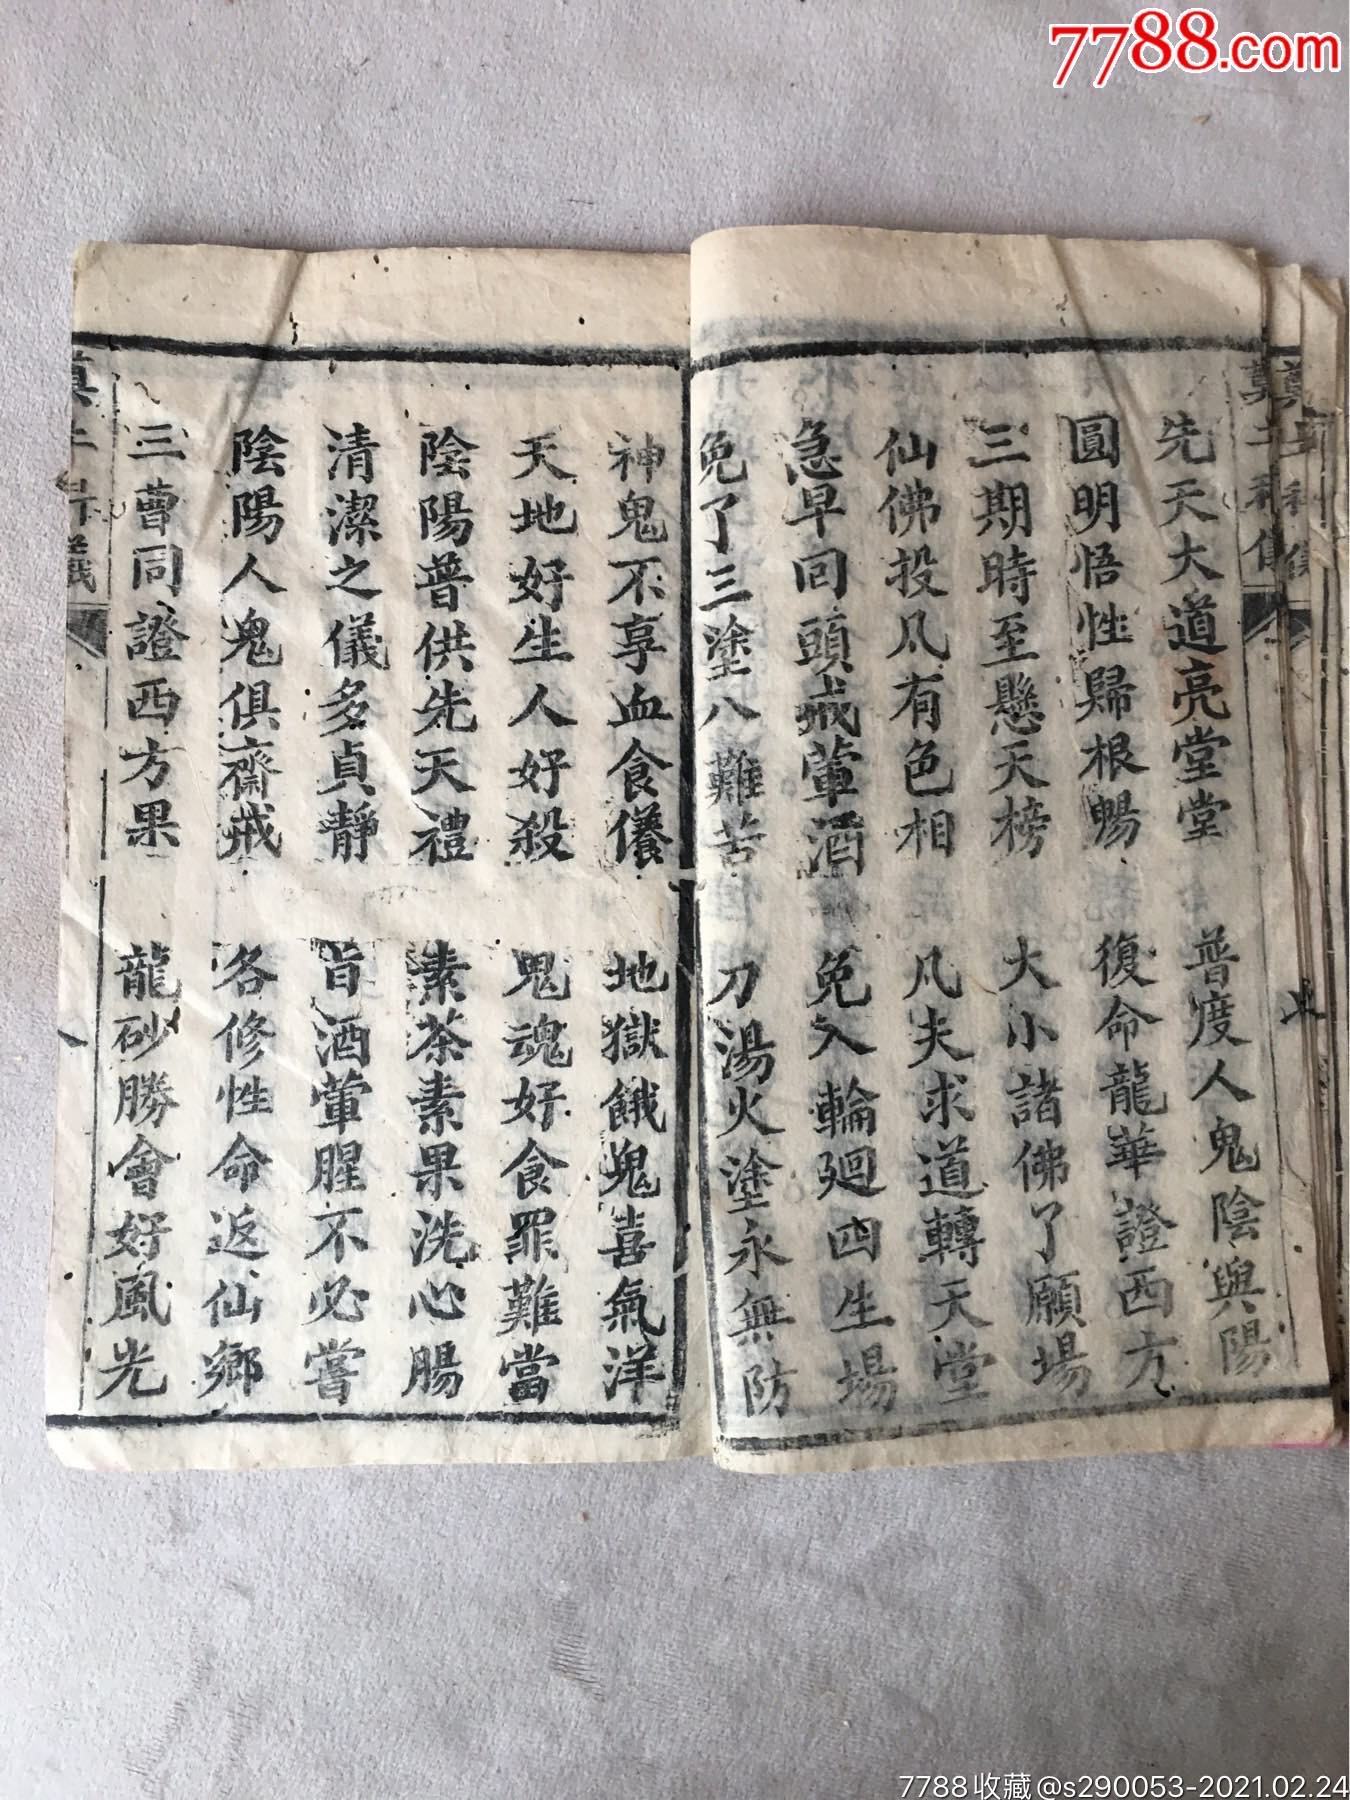 7788.com
先天大道亮堂堂 普度人鬼陰與陽
圓明悟性歸根暢 復命龍華證西方
三期時至懸天榜 大小諸佛了願場
仙佛投凡有色相 凡夫求道轉天堂
急早回頭戒葷酒 免入輪廻四生場
免了三塗八難苦 刀湯火塗永無防
神鬼不享血食儀 地獄餓鬼喜氣洋
天地好生人好殺 鬼魂好食罪難當
陰陽普供先天禮 素茶素果洗心腸
清潔之儀多貞靜 旨酒葷腥不必嘗
陰陽人鬼俱齋戒 各修性命返仙鄉
三曹同證西方果 龍砂勝會好風光
八
7788收藏@s290053-2021.02.24